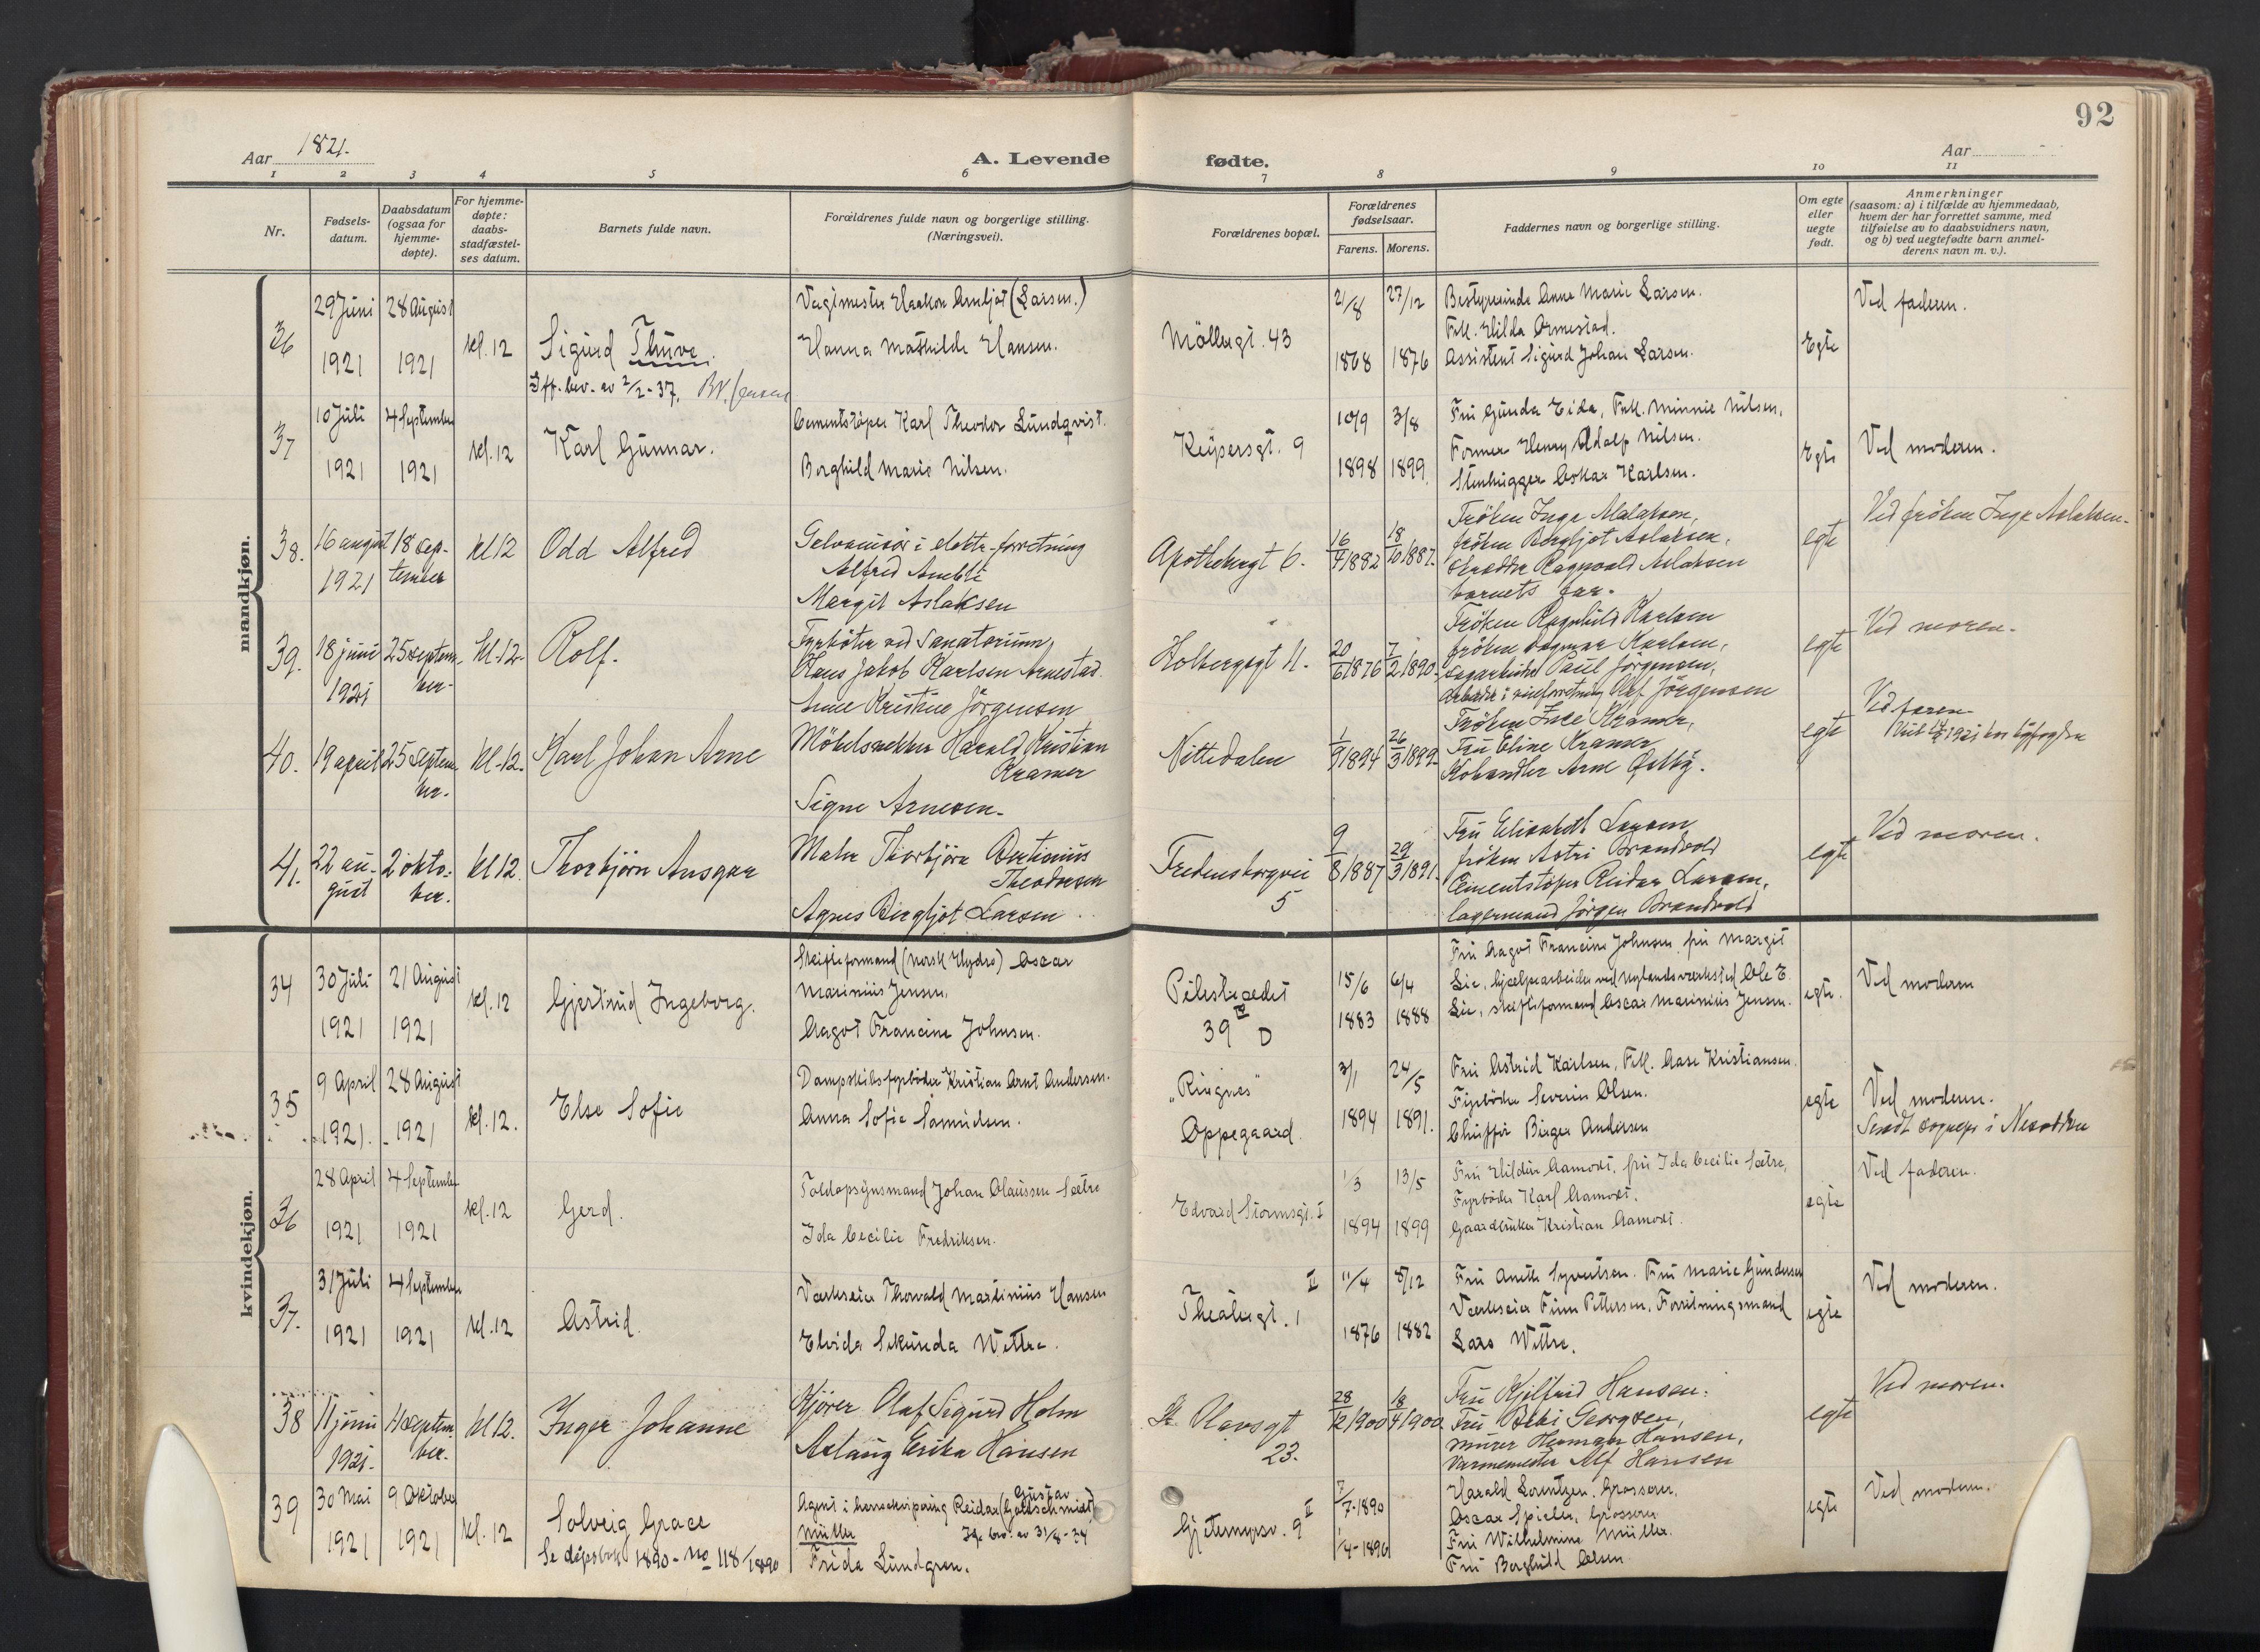 92
Aar 1821.
A. Levende fødte.
Aar
1 2 3 4 5 6 7 8 9 10 11
Nr.
Fødsels-
datum.
Daabsdatum
(ogsaa for
hjemme-
døpte).
For hjemme-
døpte:
daabs-
stadfæstel-
ses datum.
Barnets fulde navn.
Forældrenes fulde navn og borgerlige stilling.
(Næringsvei).
Forældrenes bopæl.
Forældrenes
fødselsaar.
Farens. Morens.
Faddernes navn og borgerlige stilling.
Om egte
eller
uegte
født.
Anmerkninger
(saasom: a) i tilfælde av hjemmedaab,
hvem der har forrettet samme, med
tilføielse av to daabsvidners navn,
og b) ved uegtefødte barn anmel-
derens navn m. v.).
mandkjøn.
36
29 Juni
1921
28 August
1921
kl. 12
Sigurd Thuve.
Iflf. bev. av 2/2-37.
Vagtmester Haakon Arnljot (Larsen.)
Hanna Mathilde Hansen.
Möllergt. 43
21/8
1868
27/12
1876
Bestyrerinde Anna Marie Larsen.
Frk. Hilda Ormestad.
Assistent Sigurd Johan Larsen.
Egte
Ved faderen.
37
10 Juli
1921
4 September
1921
kl. 12
Karl Gunnar.
Cementstöper Karl Theodor Lundqvist.
Borghild Marie Nilsen.
Keysersgt. 9
10/9
1898
3/8
1899
Fru Gunda Eide, Frk. Minnie Nilsen,
Former Henry Adolf Nilsen.
Stenhugger Oskar Karlsen.
Egte
Ved moderen.
38.
16 august
1921
18 sep-
tember
kl 12
Odd Alfred
Galvanisör i elektr. forretning
Alfred
Margit Aslaksen
Apothekergt 6.
16/4 1882
18/10 1887
Fröken Inga Aslaksen,
fröken Bergljot Aslaksen,
Skrædder Ragnvald Aslaksen
barnets far.
egte
Ved fröken Inga Aslaksen.
39.
18 juni
1921
25 septem-
ber.
kl. 12.
Rolf.
Fyrböter ved Sanatorium,
Hans Jakob Karlsen Arnestad.
Anne Kristine Jörgensen
Holbergsgt 11.
20/6 1876
7/2 1890
Fröken Ragnhild Karlsen
fröken Dagmar Karlsen,
Paul Jörgensen,
Arbeider i vinforretning Alf Jörgensen
egte
Ved moren.
40.
19 april
25 septem-
ber.
kl. 12.
Karl Johan Arne
Harald Kristian
Kramer
Signe Arnesen.
Nittedalen
1/9 1894
26/3 1899
Fröken Kramer,
Fru Eline Kramer
Arne Østby.
egte
Ved faren
41.
22 au-
gust
2 okto-
ber.
kl 12.
Thorbjörn Ansgar
Maler Thorbjörn Bertinius
Theodorsen
Agnes Bergljot Larsen
Fredensborgvei
5
9/8 1887
29/3 1891.
Fru Elisabeth Larsen
fröken Astri Brandvold
Cementstöper Reidar Larsen,
lagermand Jörgen Brandvold
egte
Ved moren.
kvindekjøn.
34
30 Juli
1921
21 August
1921
kl. 12
Gjertrud Ingeborg.
Skifteformand (Norsk Hydro) Oscar
Marinius Jensen.
Aagot Francine Johnsen.
Pilestrædet
39 IV D
15/6
1883
6/4
1888
Fru Aagot Francine Johnsen, fru Margit
Lie, hjælpearbeider ved Nylandsværksted Ole E.
Lie, skifteformand Oscar Marinius Jensen.
egte.
Ved moderen
35
9 April
1921.
28 August
1921
kl. 12.
Else Sofie
Dampskibsfyrböder Kristian Arnt Andersen.
Anna Sofie Samuelsen.
„Ringnes"
Oppegaard.
3/1
1894
24/5
1891.
Fru Astrid Karlsen, Frk. Aase Kristiansen.
Fyrböder Severin Olsen.
Chuffør Birger Andersen
egte
Ved moderen.
Sendt sognepr i Nesodden
36
28 April
1921
4 September
1921
kl. 12
Gerd.
Toldopsynsmand Johan Olaussen Sætre
Ida Cecilie Fredriksen.
Edvard Stormsgt. I
1/3
1894
13/5
1899
Fru Hildur Aamodt, fru Ida Cecilie Sætre,
Fyrböder Karl Aamodt.
Gaardbruker Kristian Aamodt.
egte
Ved faderen.
37.
31 Juli
1921
4 September
1921
kl. 12
Astrid.
Verkseier Thorvald Martinius Hansen
Elvida Sekunda Wittre.
Theatergt. 1 II
11/4
1876
8/12
1882
Fru Anette Syvertsen. Fru Marie Gundersen
Værkseier Finn Pettersen, Forretningsmand
Lars Wittre.
egte
Ved moderen.
38
11 juni
1921.
4 septem-
ber.
kl 12.
Inger Johanne
Kjörer Olaf Sigurd Holm
Aslaug Erika Hansen
St. Olavsgt
23.
28/12 1900
18/4 1900
Fru Kjelfrid Hansen.
Fru Bebi Georgsen,
murer Herman Hansen,
Varmemester Alf Hansen
egte
Ved moren.
39
30 Mai
1921
9 Oktober
1921
kl. 12
Solveig Grace
Se døpsbok 1890 - No 118/1890
Agent i herreekvipering Reidar Gustav (Goldschmidt)
Müller Ifg. bev. av 31/8-34
Frida Lundgren.
Gjetemyrsv. 9 II
7/7-1890
1/4-1896
Harald Lorentzen, Grosserer.
Oscar Spieler, Grosserer
Fru Wilhelmine Müller.
Fru Borghild Olsen.
egte
Ved moderen.